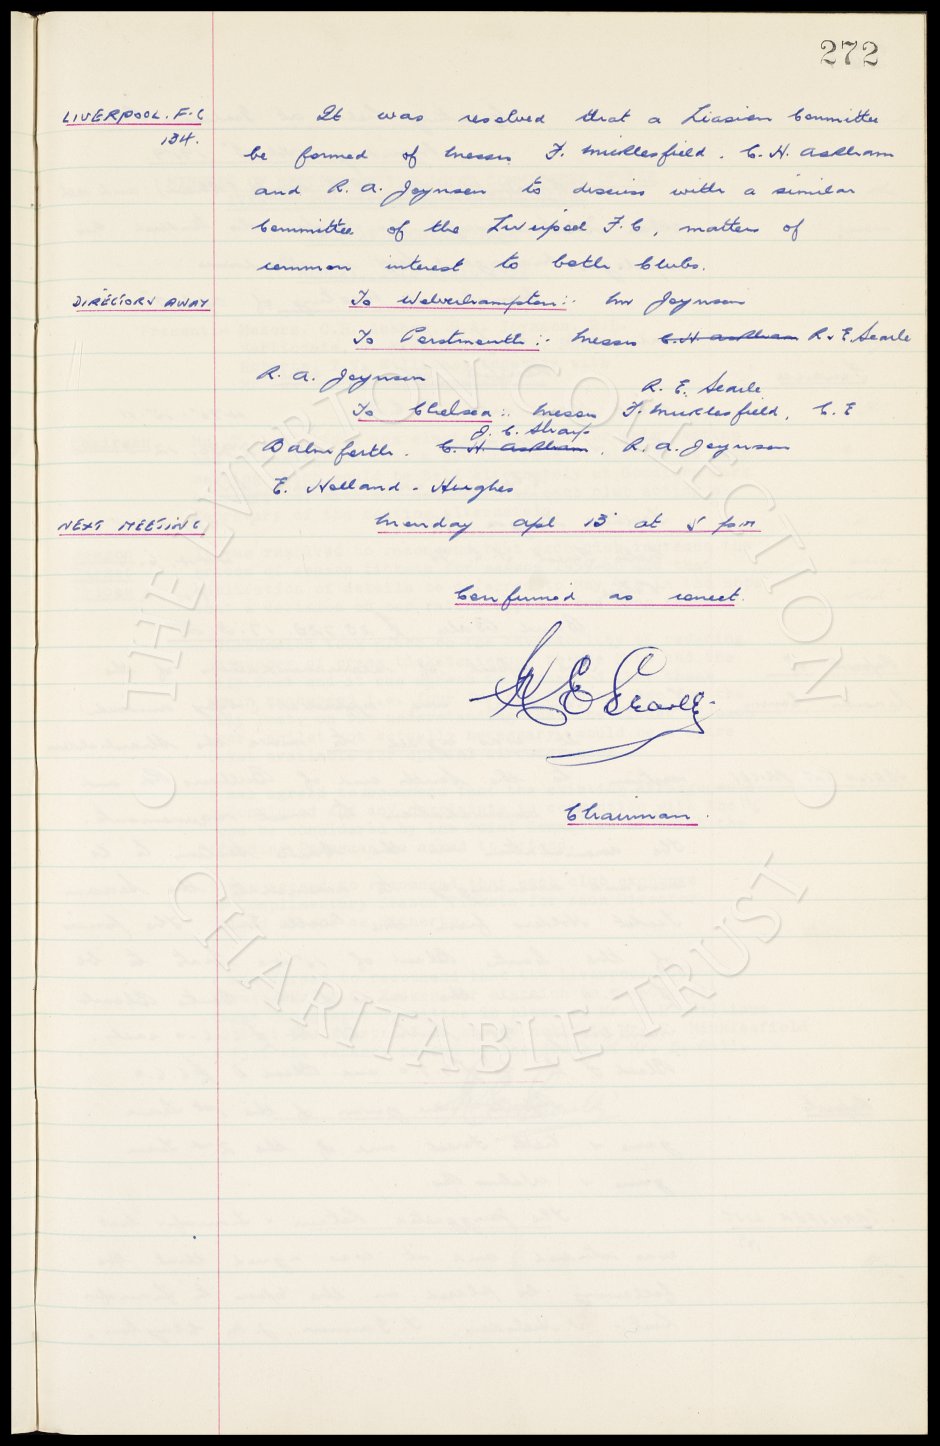 272
LIVERPOOL. F.C It was resolved that a Liasion Committee
134. be formed of Messrs F. Micklesfield. C. H. Askham
and R. A. Joynson to discuss with a similar
Committee of the Liverpool F.C, matters of
common interest to both Clubs.
DIRECTORS AWAY To Wolverhampton:- Mr Joynson
To Portsmouth:- Messrs C. H. Askham R. E. Searle
R. A. Joynson
R. E. Searle
To Chelsea:- Messrs F. Micklesfield, C. E
J. C. Sharp
Balmforth. C. H. Askham. R. A. Joynson
E. Holland-Hughes
NEXT MEETING Monday Apl 13 at 5 pm
Confirmed as correct.
R E Searle
Chairman.
© THE EVERTON COLLECTION ©
CHARITABLE TRUST